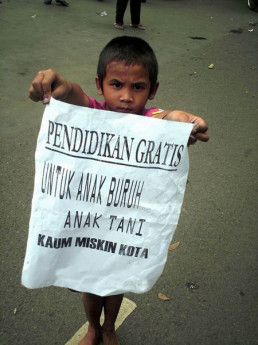 PENDIDIKAN GRATIS
UNTUK ANAK BURUH
ANAK TANI
KAUM MISKIN KOTA